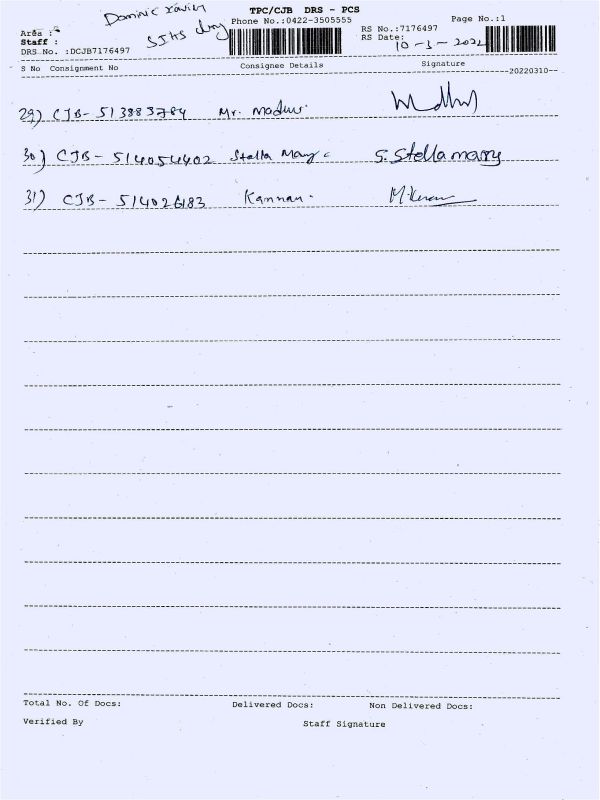 Dominic
TPC/CJB DRS - PCS
Phone No.:0422-3505555
Page No.:1
Area :
Staff :
DRS No. :DCJB7176497
RS No.:7176497
RS Date:
10-3-2022
S No Consignment No Consignee Details Signature
--20220310--
29) CJB- 513883784 Mr. Madhu
30) CJB- 514054402 Stella Mary S. Stella mary
31) CJB- 514026183 Kannan
Total No. Of Docs: Delivered Docs: Non Delivered Docs:
Verified By Staff Signature